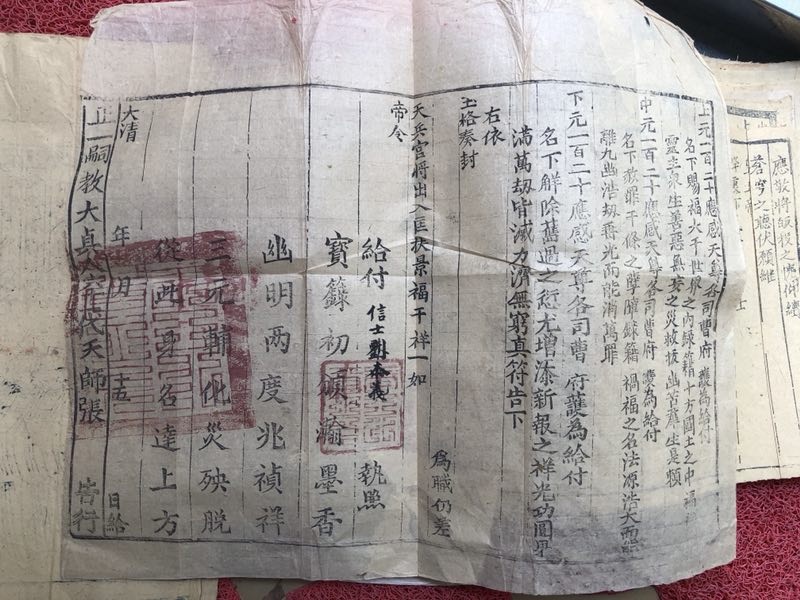 上元一百二十應感天尊各司曹府 護為給付
名下賜福火千世界之內錄籍十方圓土之中
生善惡無之災救拔幽苦
中元一百二十應感天尊各司曹府 護為給付
名下赦罪千條之孽障錄籍 禍福之名法源浩大而能
離九幽浩劫乘光而能消萬罪
下元一百二十應感天尊各司曹 府護為給付
名下解除舊過之愆尤增添新報之祥光功圓果
滿萬劫皆滅力濟無窮真符告下
右依
玉格奏封 為職仍差
天兵官將出入匡扶景福千祥一如
帝令
給付 信士劉本義 執照
寶籙初頒瀚墨香
幽明兩度兆禎祥
三元輔化災殃脫
從此身名達上方
大清 年 月 十五 日給
正一嗣教大真人 代天師張 告行
應
蒼穹之聽伏願維